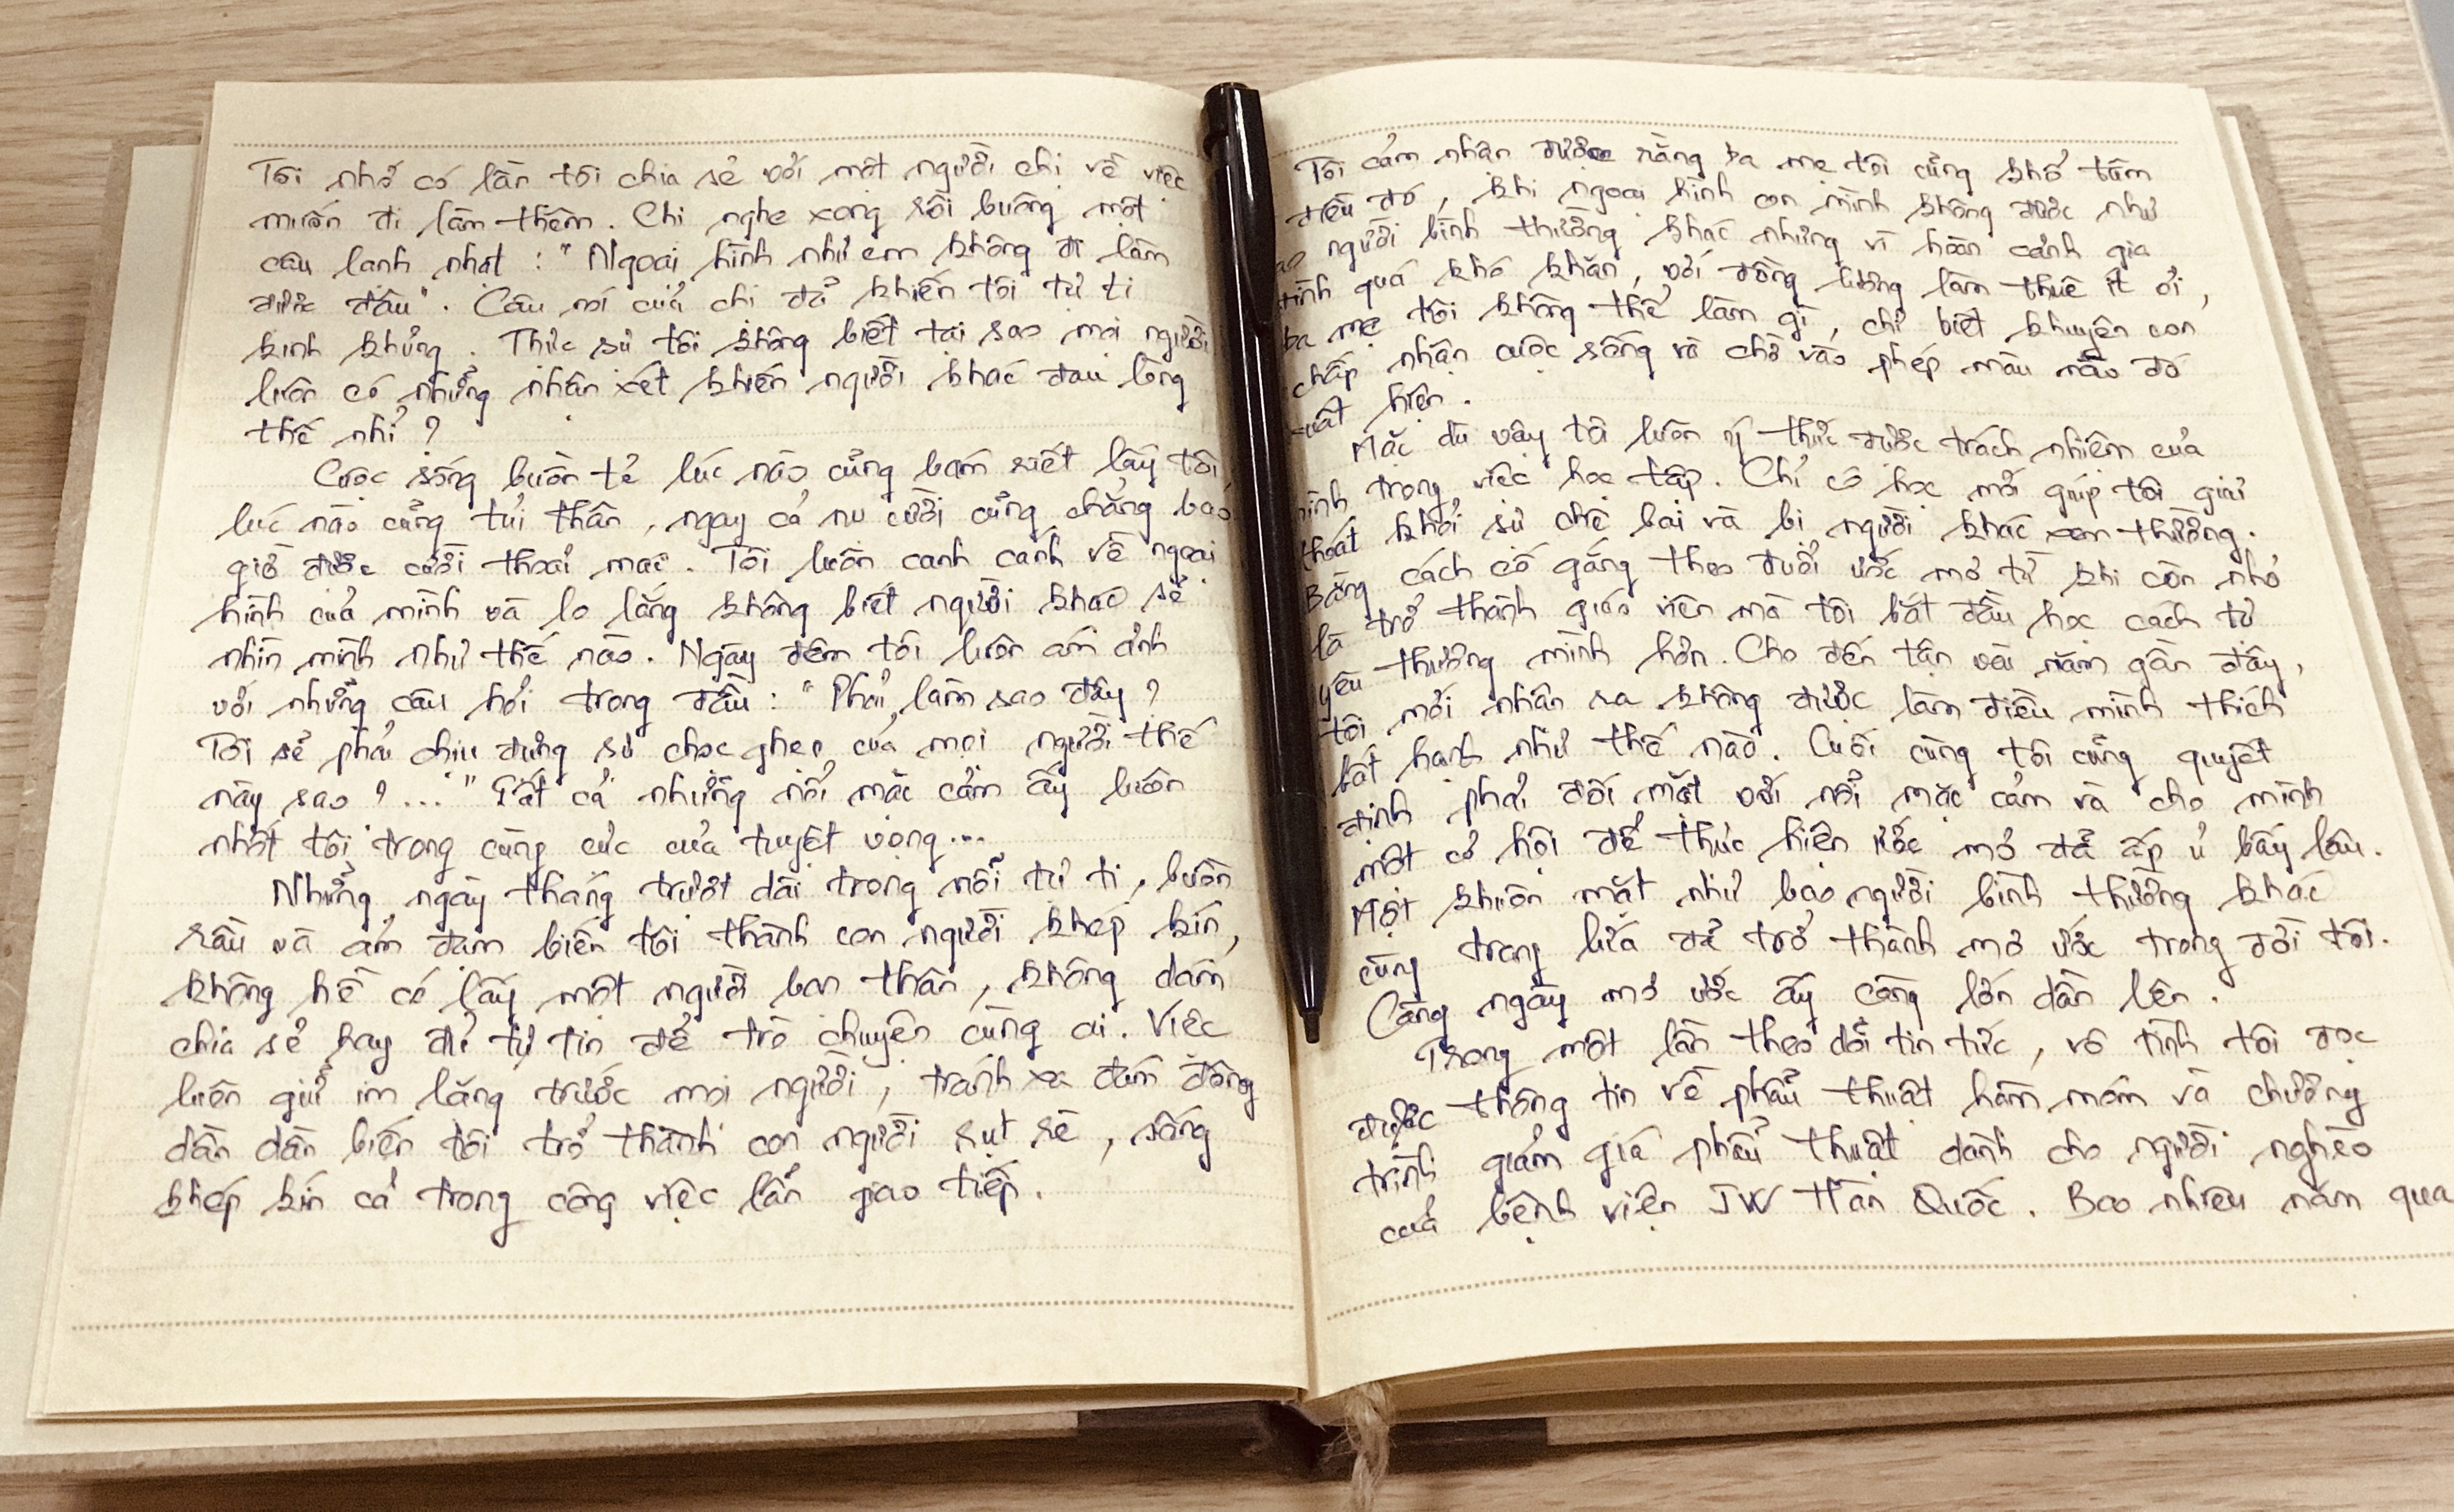 Tôi nhớ có lần tôi chia sẻ với một người chị về việc
muốn đi làm thêm. Chị nghe xong rồi buông một
câu lạnh nhạt : "Ngoại hình như em không đi làm
được đâu". Câu nói của chị đã khiến tôi tự ti
kinh khủng. Thực sự tôi không biết tại sao mọi người
luôn có những nhận xét khiến người khác đau lòng
thế nhỉ ?
Cuộc sống buồn tẻ lúc nào cũng bám riết lấy tôi
lúc nào cũng tủi thân, ngay cả nụ cười cũng chẳng bao
giờ được cười thoải mái. Tôi luôn canh cánh về ngoại
hình của mình và lo lắng không biết người khác sẽ
nhìn mình như thế nào. Ngày đêm tôi luôn ám ảnh
với những câu hỏi trong đầu : "Phải làm sao đây ?
Tôi sẽ phải chịu đựng sự chọc ghẹo của mọi người thế
này sao ? ..." Tất cả những nỗi mặc cảm ấy luôn
nhốt tôi trong cùng cực của tuyệt vọng...
Những ngày tháng trượt dài trong nỗi tự ti, buồn
rầu và ảm đạm biến tôi thành con người khép kín,
không hề có lấy một người bạn thân, không dám
chia sẻ hay đủ tự tin để trò chuyện cùng ai. Việc
luôn giữ im lặng trước mọi người, tránh xa đám đông
dần dần biến tôi trở thành con người rụt rè, sống
khép kín cả trong công việc lẫn giao tiếp.
Tôi cảm nhận được rằng ba mẹ tôi cũng khổ tâm
điều đó, khi ngoại hình con mình không được như
bao người bình thường khác nhưng vì hoàn cảnh gia
đình quá khó khăn, với đồng lương làm thuê ít ỏi,
ba mẹ tôi không thể làm gì, chỉ biết khuyên con
chấp nhận cuộc sống và chờ vào phép màu nào đó
xuất hiện.
Mặc dù vậy tôi luôn ý thức được trách nhiệm của
mình trong việc học tập. Chỉ có học mới giúp tôi giải
thoát khỏi sự chê bai và bị người khác xem thường.
Bằng cách cố gắng theo đuổi ước mơ từ khi còn nhỏ
là trở thành giáo viên mà tôi bắt đầu học cách tự
yêu thương mình hơn. Cho đến tận vài năm gần đây,
tôi mới nhận ra không được làm điều mình thích
bất hạnh như thế nào. Cuối cùng tôi cũng quyết
định phải đối mặt với nỗi mặc cảm và cho mình
một cơ hội để thực hiện ước mơ đã ấp ủ bấy lâu.
Một khuôn mặt như bao người bình thường khác
cùng trang lứa đã trở thành mơ ước trong đời tôi.
Càng ngày mơ ước ấy càng lớn dần lên.
Trong một lần theo dõi tin tức, vô tình tôi đọc
được thông tin về phẫu thuật hàm móm và chương
trình giảm giá phẫu thuật dành cho người nghèo
của bệnh viện JW Hàn Quốc. Bao nhiêu năm qua